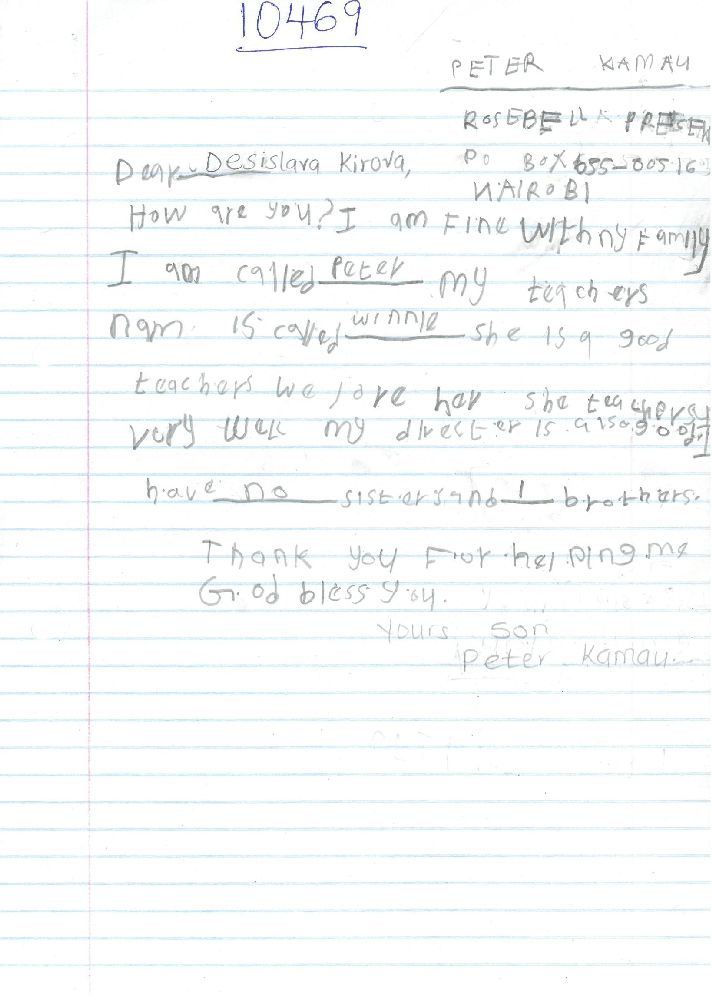 10469
PETER KAMAU
ROSEBELL PRESEN
Dear Desislara Kirova,
PO BOX 655-00516
NAIROBI
How are you? I am Fine with my Family
I am called Peter my teachers
nam is called winnie she is a good
teachers we lore her she teachers
very well my director is also good. I
have no sisters and 1 brothers.
Thank you For helping me
God bless you.
yours son
Peter Kamau.